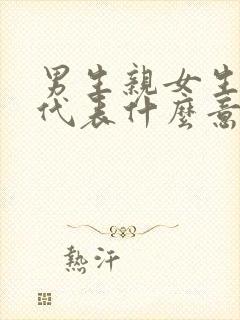 男生親女生
代表什麼意
熱汗